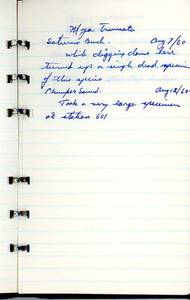 Mya truncata
Saturna Beach. Aug 7/60
while digging clams here
turned up a single dead specimen
of this species.
Plumper Sound. Aug 12/60
Took a very large specimen
at station 601